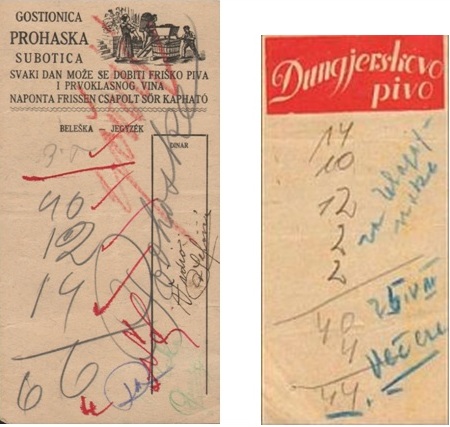 GOSTIONICA
PROHASKA
SUBOTICA
SVAKI DAN MOŽE SE DOBITI FRIŠKO PIVA
I PRVOKLASNOG VINA
NAPONTA FRISSEN CSAPOLT SÖR KAPHATÓ
BELEŠKA — JEGYZÉK
DINAR
40
12
14
66
Prohaska
Dungjerskovo
pivo
14
10
12
2
2
40
4
44.-
za
večeru